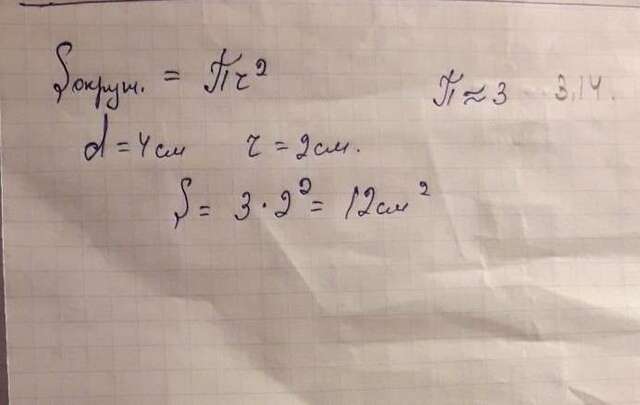 Sокруж. = Пr² П ≈ 3 3,14.
d = 4 см r = 2 см.
S = 3 · 2² = 12 см²